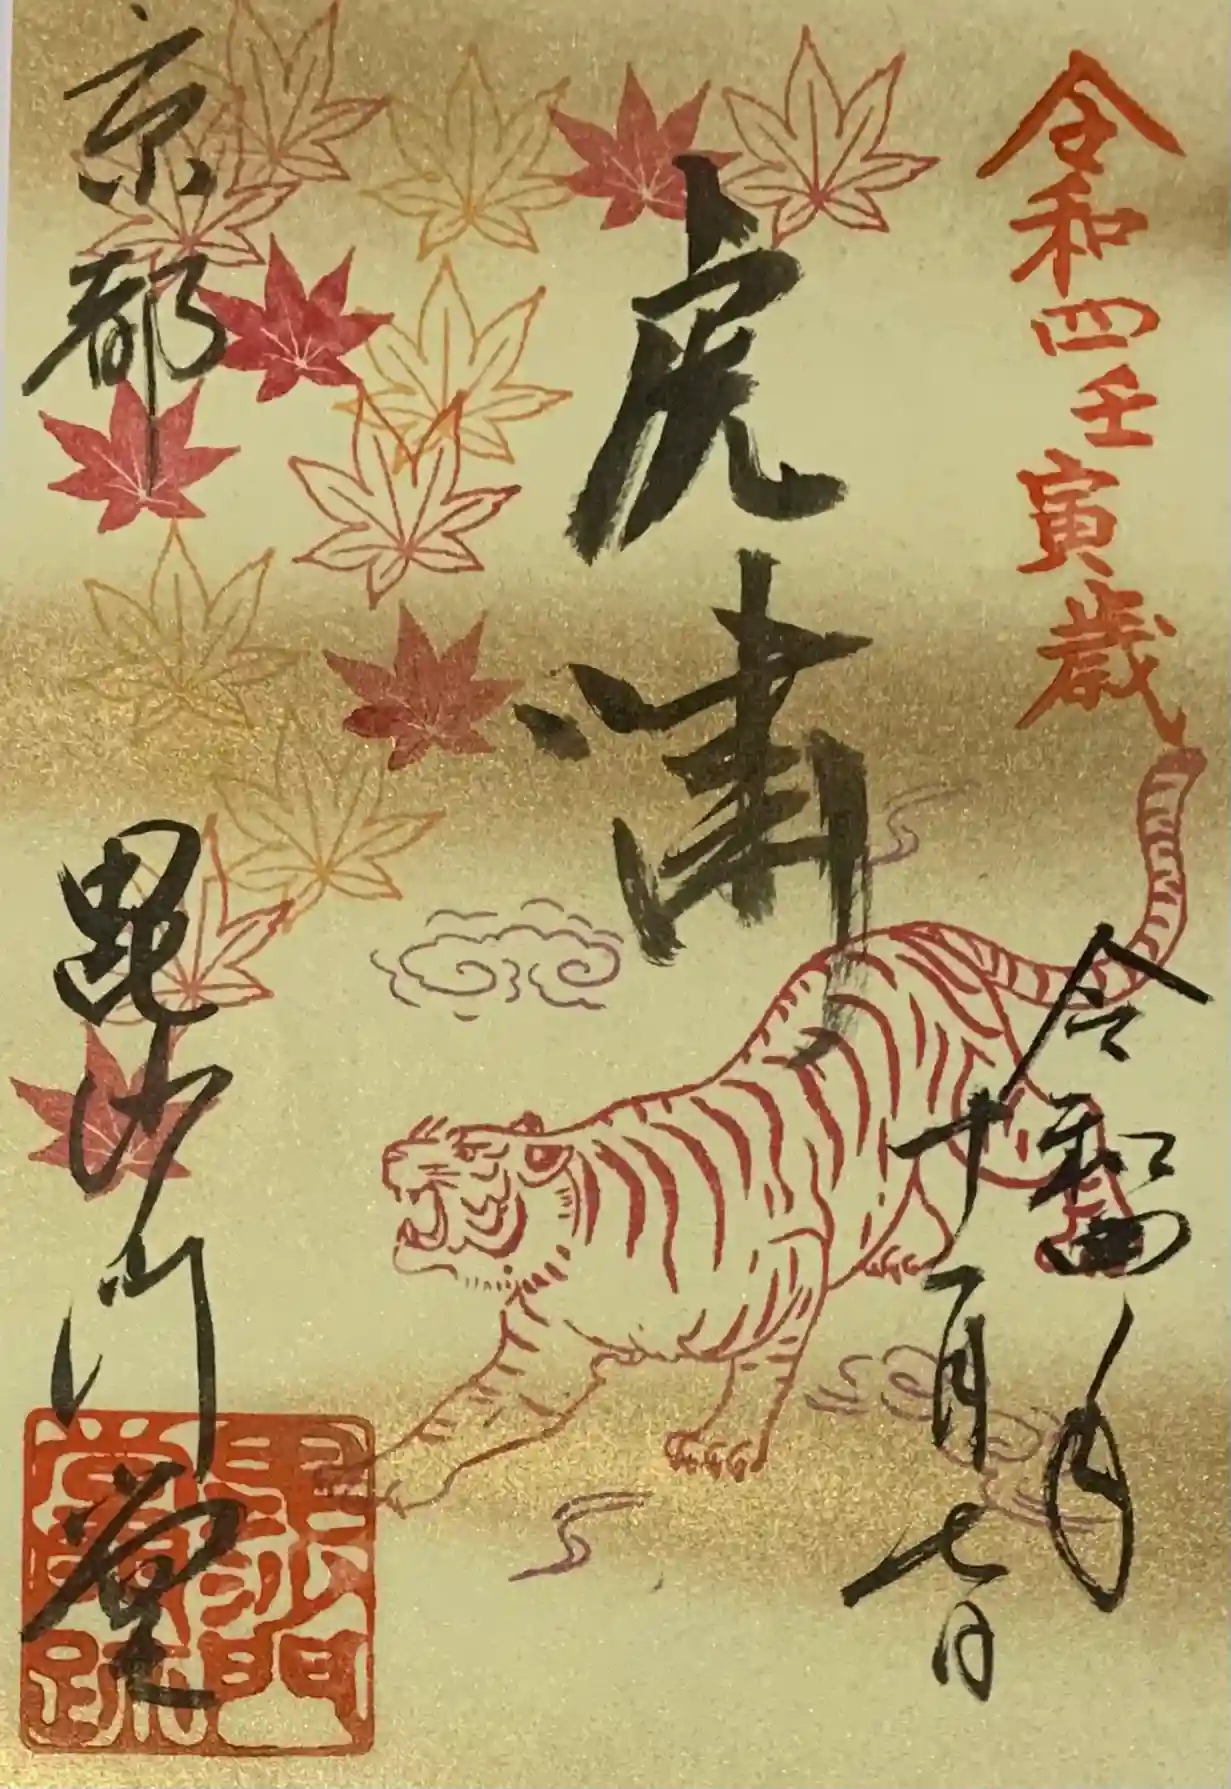 令和四壬寅歳
令和四年
十一月七日
虎嘯
京都
毘沙門堂
毘沙門